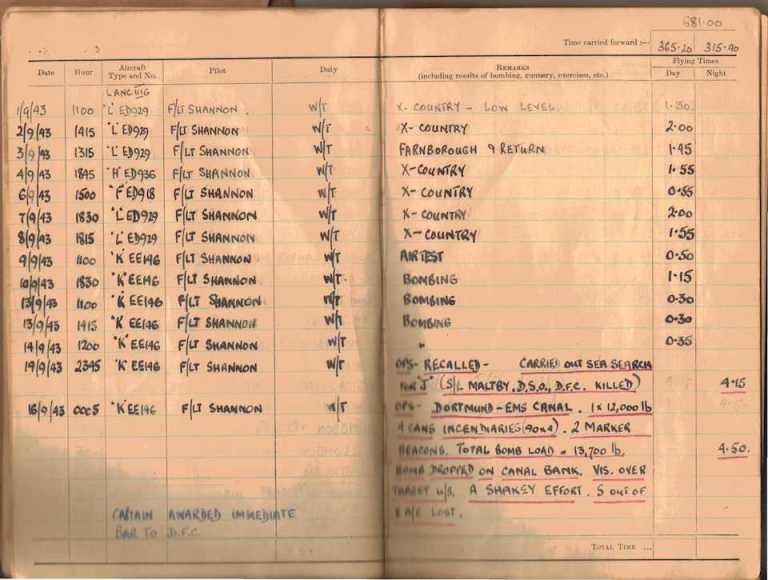 681·00
Time carried forward :— 365·20 315·40
Date Hour Aircraft Type and No. Pilot Duty Remarks (including results of bombing, gunnery, exercises, etc.) Flying Times Day Night
LANC III G
1/9/43 1100 'L' ED929 F/LT SHANNON. W/T X-COUNTRY - LOW LEVEL 1·30
2/9/43 1415 'L' ED929 F/LT SHANNON W/T X-COUNTRY 2·00
3/9/43 1315 'L' ED929 F/LT SHANNON W/T FARNBOROUGH & RETURN 1·45
4/9/43 1845 'H' ED936 F/LT SHANNON W/T X-COUNTRY 1·55
6/9/43 1500 'F' ED918 F/LT SHANNON W/T X-COUNTRY 0·55
7/9/43 1830 'L' ED929 F/LT SHANNON W/T X-COUNTRY 2·00
8/9/43 1815 'L' ED929 F/LT SHANNON W/T X-COUNTRY 1·55
9/9/43 1100 'K' EE146 F/LT SHANNON W/T AIRTEST 0·50
10/9/43 1830 'K' EE146 F/LT SHANNON W/T. BOMBING 1·15
13/9/43 1100 'K' EE146 F/LT SHANNON W/T BOMBING 0·30
13/9/43 1415 'K' EE146 F/LT SHANNON W/T BOMBING 0·30
14/9/43 1200 'K' EE146 F/LT SHANNON W/T " 0·35
14/9/43 2345 'K' EE146 F/LT SHANNON W/T OPS- RECALLED - CARRIED OUT SEA SEARCH
FOR "J" (S/L MALTBY. D.S.O., D.F.C. KILLED) 4·15
16/9/43 0005 'K' EE146 F/LT SHANNON W/T OPS- DORTMUND-EMS CANAL. 1 x 12,000 lb
4 CANS INCENDIARIES (90x4). 2 MARKER
BEACONS. TOTAL BOMB LOAD = 13,700 lb. 4·50.
BOMB DROPPED ON CANAL BANK. VIS. OVER
TARGET U/S. A SHAKEY EFFORT. 5 OUT OF
8 A/C LOST.
CAPTAIN AWARDED IMMEDIATE
BAR TO D.F.C.
Total Time ...